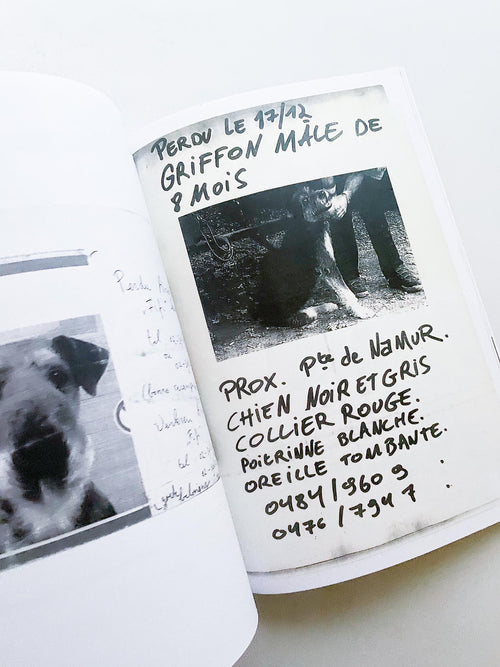 Perdu
tel
tel
PERDU LE 17/12
GRIFFON MÂLE DE
8 MOIS
PROX. Pte de NAMUR.
CHIEN NOIR ET GRIS
COLLIER ROUGE.
POITRINNE BLANCHE.
OREILLE TOMBANTE.
0484/960 9
0476/794 7